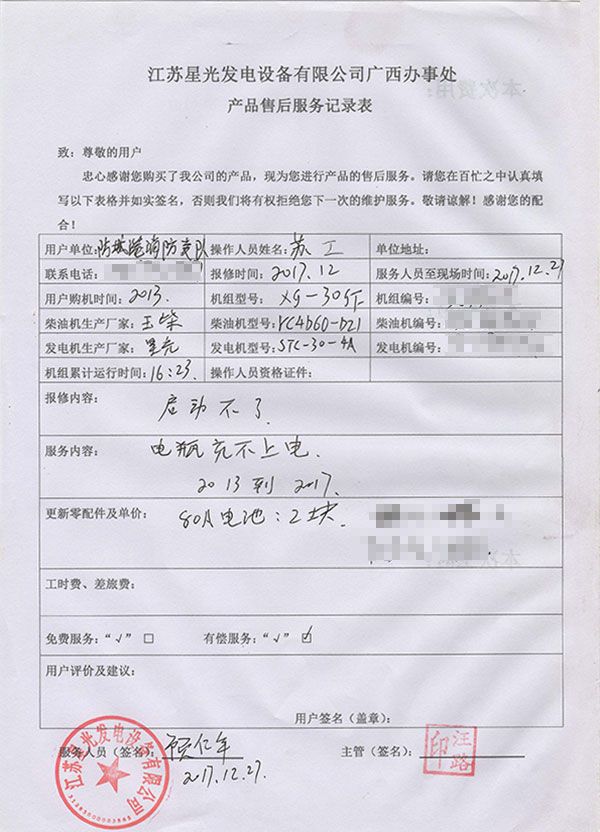 江苏星光发电设备有限公司广西办事处
产品售后服务记录表
致：尊敬的用户
忠心感谢您购买了我公司的产品，现为您进行产品的售后服务。请您在百忙之中认真填
写以下表格并如实签名，否则我们将有权拒绝您下一次的维护服务。敬请谅解！感谢您的配
合！
用户单位：防城港消防支队 操作人员姓名：苏工 单位地址：
联系电话： 报修时间：2017.12 服务人员至现场时间：2017.12.27
用户购机时间：2013. 机组型号：XG-30GF 机组编号：
柴油机生产厂家：玉柴 柴油机型号：YC4D60-D21 柴油机编号：
发电机生产厂家：星光 发电机型号：STC-30-4A 发电机编号：
机组累计运行时间：16：23 操作人员资格证件：
报修内容：
启动不了
服务内容：
电瓶充不上电.
2013到2017.
更新零配件及单价：
80A电池：2块.
工时费、差旅费：
免费服务：“√”□ 有偿服务：“√”☑
用户评价及建议：
用户签名（盖章）：
服务人员（签名）：顾仁年 主管（签名）：
2017.12.27.
江苏星光发电设备有限公司
汪路印
本次费用：